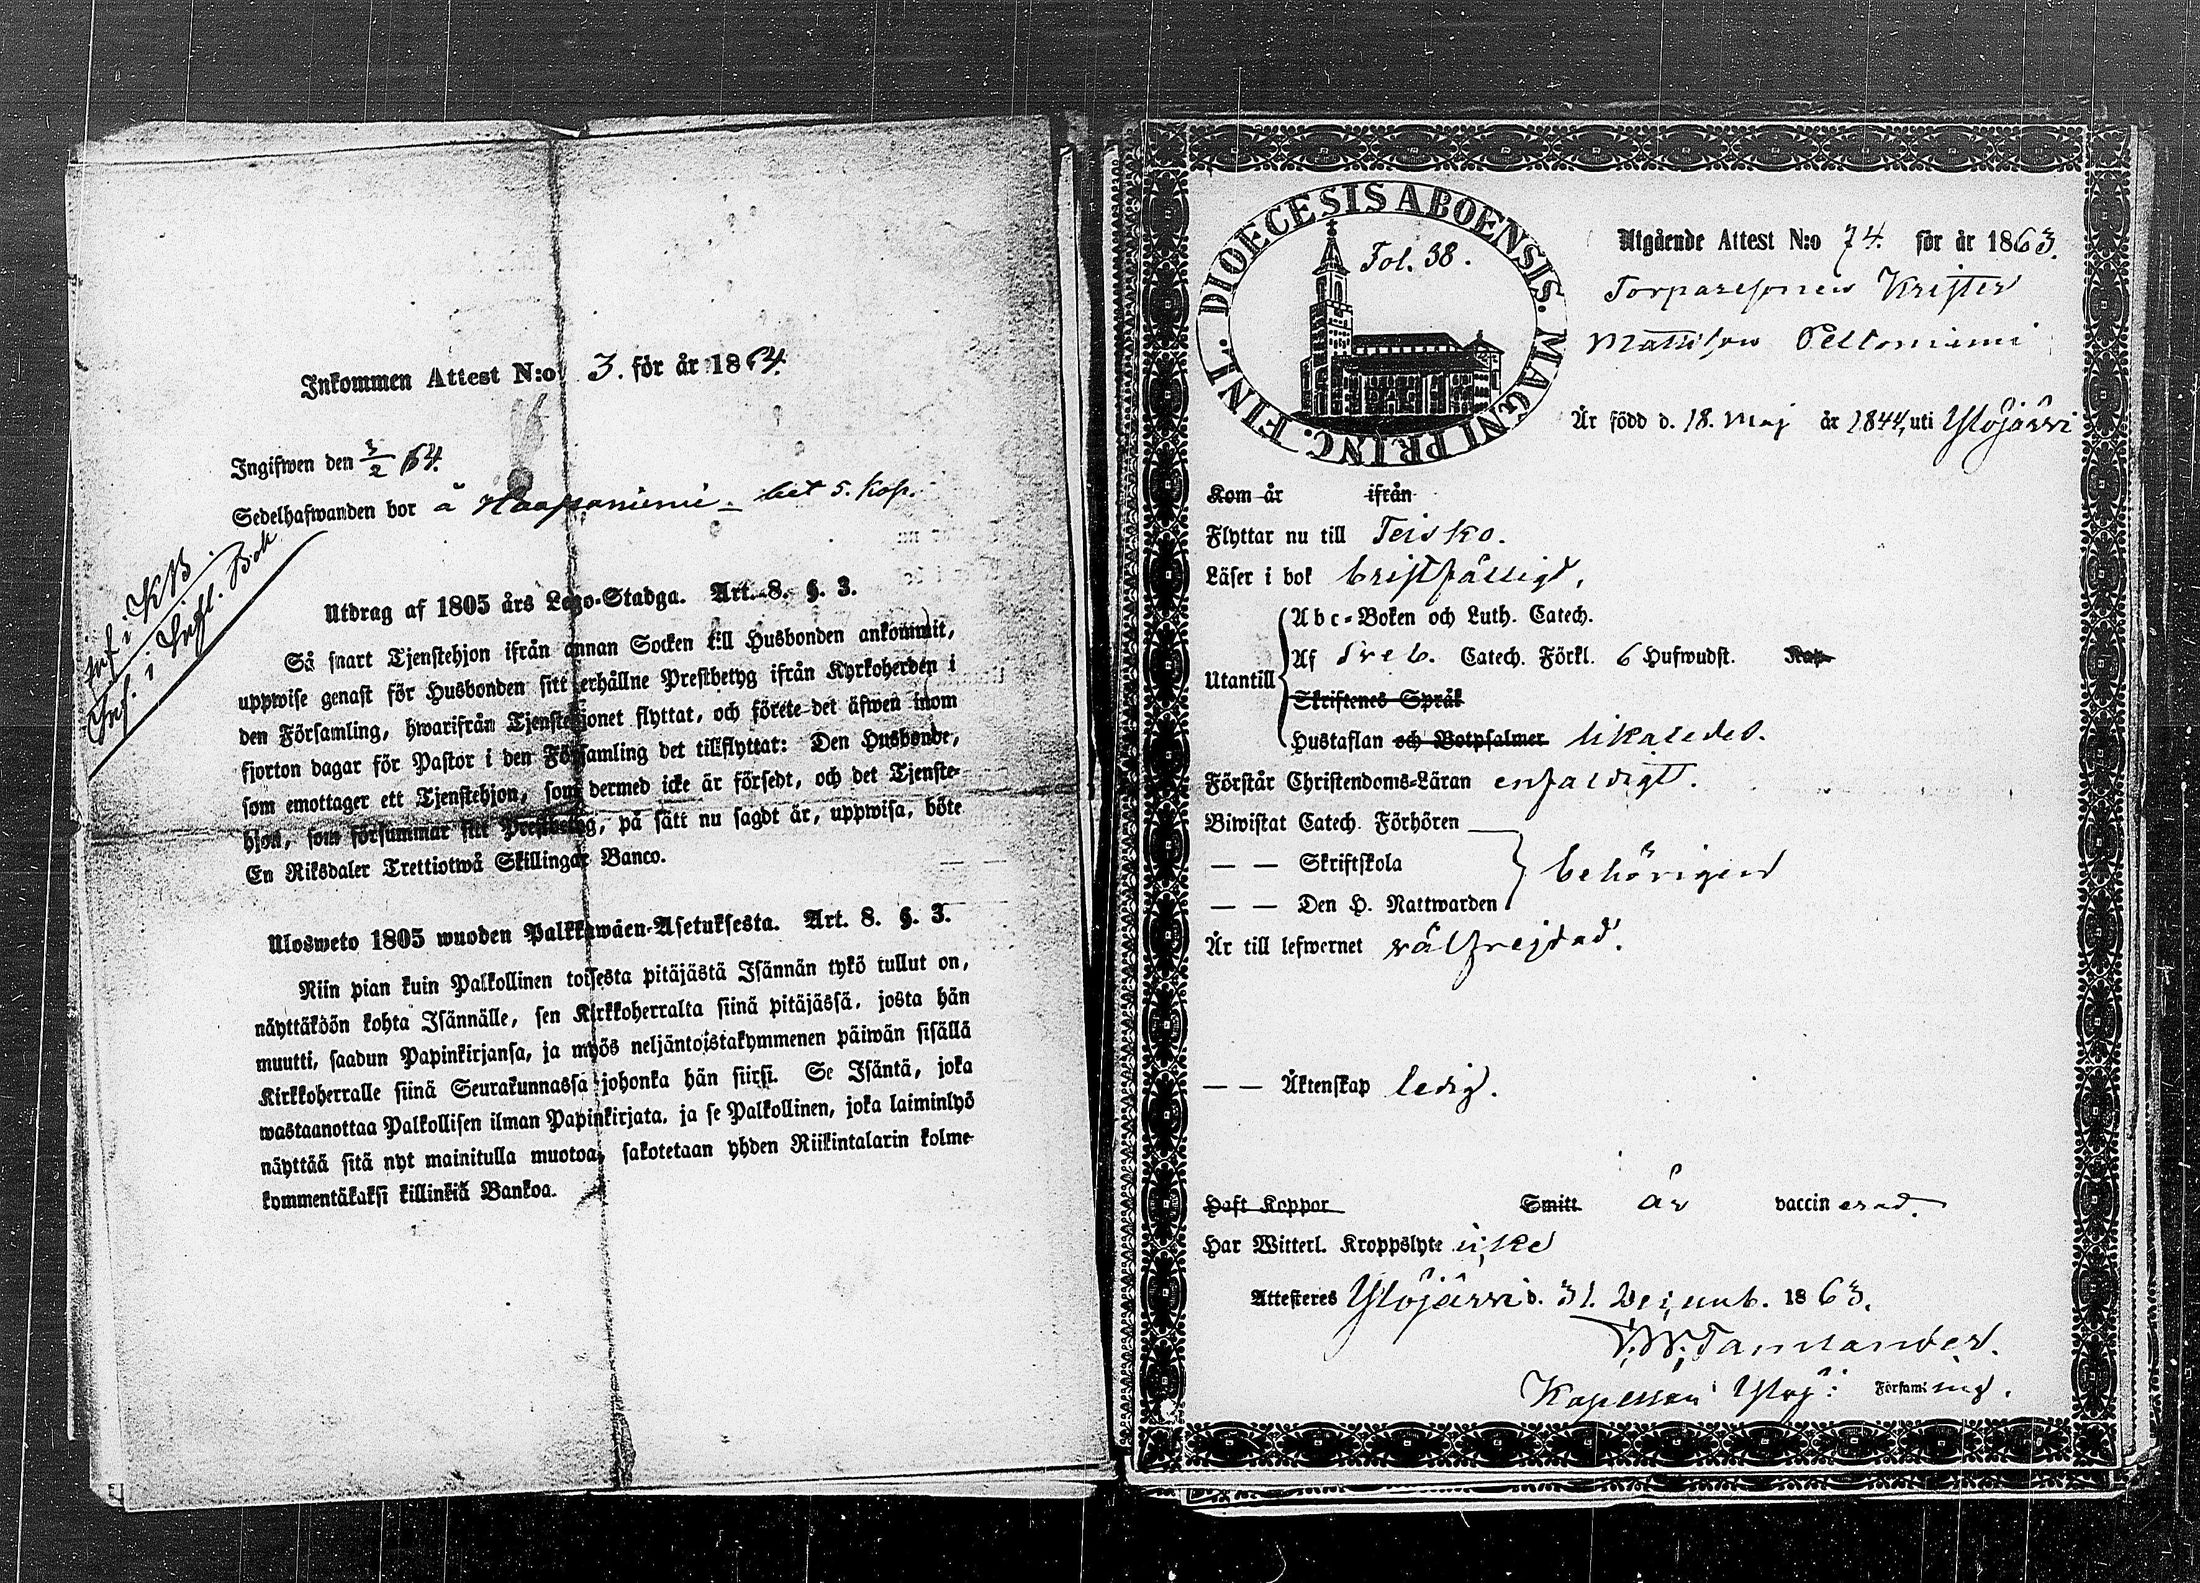 Inkommen Attest N:o 3. för år 1864.
Ingifwen den 3/2 64.
Sedelhafwanden bor å Haapaniemi – bet 5. Kop.
Inf. i KB
Inf. i Infl. Bok
Utdrag af 1805 års Lego-Stadga. Art. 8. §. 3.
Så snart Tjenstehjon ifrån annan Socken till Husbonden ankommit,
uppwise genast för Husbonden sitt erhållne Prestbetyg ifrån Kyrkoherden i
den Församling, hwarifrån Tjenstehjonet flyttat, och förete det äfwen inom
fjorton dagar för Pastor i den Församling det tillflyttat: Den Husbonde,
som emottager ett Tjenstehjon, som dermed icke är försedt, och det Tjenste-
hjon, som försummar sitt Prestbetyg, på sätt nu sagdt är, uppwisa, böte
En Riksdaler Trettiotwå Skillingar Banco.
Ulosweto 1805 wuoden Palkkawäen-Asetuksesta. Art. 8. §. 3.
Niin pian kuin Palkollinen toisesta pitäjästä Isännän tykö tullut on,
näyttäköön kohta Isännälle, sen Kirkkoherralta siinä pitäjässä, josta hän
muutti, saadun Papinkirjansa, ja myös neljäntoistakymmenen päiwän sisällä
Kirkkoherralle siinä Seurakunnassa johonka hän siirsi. Se Isäntä, joka
wastaanottaa Palkollisen ilman Papinkirjata, ja se Palkollinen, joka laiminlyö
näyttää sitä nyt mainitulla muotoa, sakotetaan yhden Riikintalarin kolme-
kommentäkaksi killinkiä Bankoa.
DIOECESIS ABOENSIS. MAGNI PRINC. FINL.
Fol. 38.
Utgående Attest N:o 74. för år 1863.
Torparesonen Krister
Mattsson Peltoniemi
Är född d. 18. Maj år 1844, uti Ylöjärvi
Kom år ifrån
Flyttar nu till Teisko.
Läser i bok bristfälligt,
Utantill
Abc-Boken och Luth. Catech.
Af Sveb. Catech. Förkl. 6 Hufwudst. Kap.
Skriftenes Språk
Hustaflan och Botpsalmer likaledes.
Förstår Christendoms-Läran enfaldigt.
Biwistat Catech. Förhören
— — Skriftskola behörigen
— — Den H. Nattwarden
Är till lefwernet välfrejdad.
— — Äktenskap ledig.
Haft Koppor Smitt är vaccinerad.
Har Witterl. Kroppslyte icke
Attesteres Ylöjärvi d. 31. Decemb. 1863.
Tammander.
Kapellan i Ylöj: Församling.